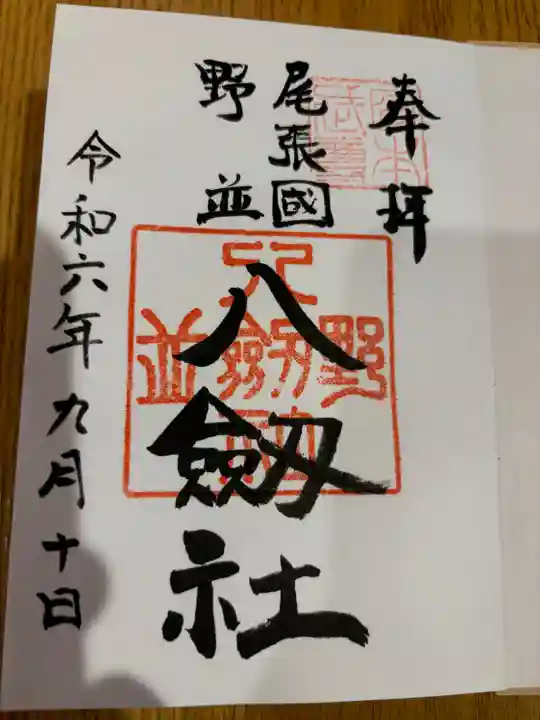 奉拝
尾張國
野並
八劔社
令和六年九月十日
野
八劔社
並